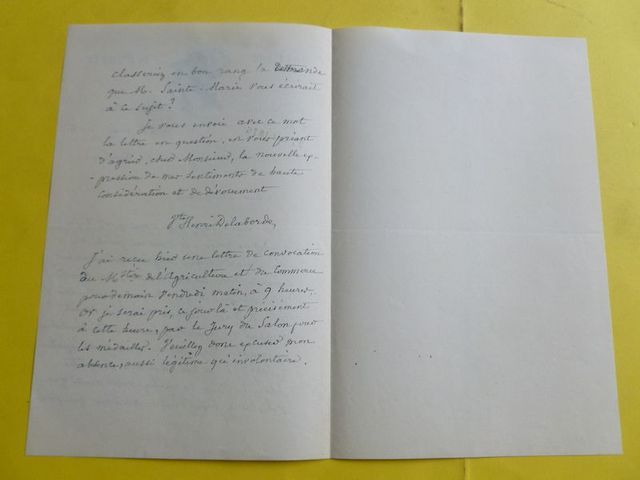 classeriez en bon rang la demande
que M. Sainte-Marie vous écrirait
à ce sujet?
Je vous envoie avec ce mot
la lettre en question, en vous priant
d'agréer, cher Monsieur, la nouvelle ex-
-pression de mes sentiments de haute
considération et de dévouement
Vte Henri Delaborde,
J'ai reçu hier une lettre de convocation
du Mtère de l'Agriculture et du Commerce
pour demain Vendredi matin, à 9 heures.
Or je serai pris, ce jour là et précisément
à cette heure, par le Jury du Salon pour
les médailles. Veuillez donc excuser mon
absence, aussi légitime qu'involontaire.